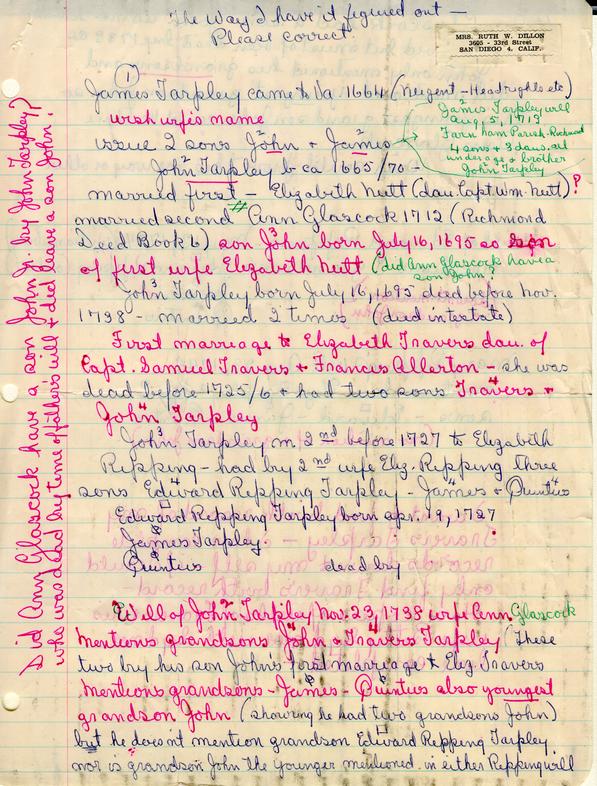 The Way I have it figured out —
Please correct
MRS. RUTH W. DILLON
3605 - 33rd Street
SAN DIEGO 4, CALIF.
①
James Tarpley came to Va. 1664 (Neugent - Headrights etc)
wish wifes name
issue 2 sons John² + James²
James Tarpley will
Aug. 5, 1713
Farnham Parish-Richmond
4 sons + 3 daus. all
under age + brother
John Tarpley
John² Tarpley b ca 1665/70 -
married first - Elizabeth Nutt (dau Capt. Wm. Nutt)?
married second # Ann Glascock 1712 (Richmond
Deed Book 6) son John³ born July 16, 1695 so son
of first wife Elizabeth Nutt (did Ann Glascock have a
son John?
John³ Tarpley born July, 16, 1695 died before Nov.
1738 - married 2 times (died intestate)
First marriage to Elizabeth Travers dau. of
Capt. Samuel Travers + Francis Allerton - she was
dead before 1725/6 + had two sons Travers⁴ +
John⁴ Tarpley
John³ Tarpley m. 2nd before 1727 to Elizabeth
Ripping - had by 2nd wife Eliz. Ripping three
sons Edward⁴ Ripping Tarpley - James⁴ + Quintius⁴
Edward Ripping Tarpley born Apr. 19, 1727
James Tarpley
Quintius dead by
Will of John² Tarpley Nov. 23, 1738 wife Ann Glascock
mentions grandsons John⁴ + Travers⁴ Tarpley (These
two by his son John's first marriage to Eliz. Travers
mentions grandsons - James - Quintius also youngest
grandson John (showing he had two grandsons John)
but he doesn't mention grandson Edward Ripping Tarpley
nor is grandson John the younger mentioned in either Ripping will
Did Ann Glascock have a son John Jr. by John Tarpley?
who was dead by time of fathers will + did leave a son John?